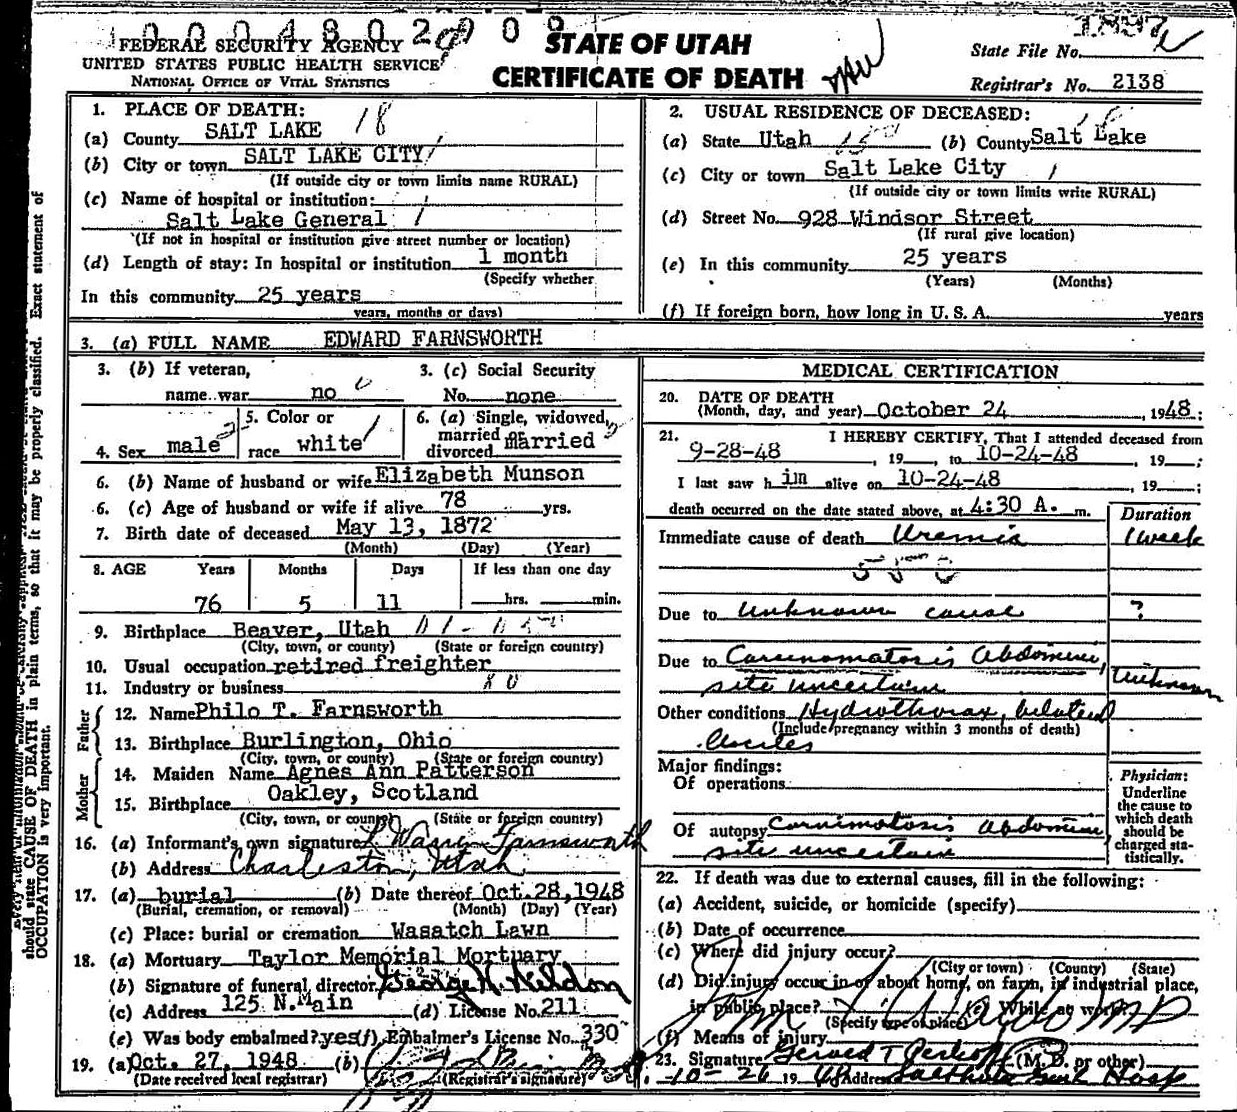 STATE OF UTAH
CERTIFICATE OF DEATH
FEDERAL SECURITY AGENCY
UNITED STATES PUBLIC HEALTH SERVICE
NATIONAL OFFICE OF VITAL STATISTICS
State File No. 1897
Registrar's No. 2138
1. PLACE OF DEATH: 18
(a) County SALT LAKE
(b) City or town SALT LAKE CITY
(If outside city or town limits name RURAL)
(c) Name of hospital or institution:
Salt Lake General
(If not in hospital or institution give street number or location)
(d) Length of stay: In hospital or institution 1 month
(Specify whether
In this community 25 years
years, months or days)
2. USUAL RESIDENCE OF DECEASED:
(a) State Utah (b) County Salt Lake
(c) City or town Salt Lake City
(If outside city or town limits write RURAL)
(d) Street No. 928 Windsor Street
(If rural give location)
(e) In this community 25 years
(Years) (Months)
(f) If foreign born, how long in U. S. A. years
3. (a) FULL NAME EDWARD FARNSWORTH
3. (b) If veteran,
name war no
3. (c) Social Security
No. none
4. Sex male
5. Color or
race white
6. (a) Single, widowed,
married or
divorced married
6. (b) Name of husband or wife Elizabeth Munson
6. (c) Age of husband or wife if alive 78 yrs.
7. Birth date of deceased May 13, 1872
(Month) (Day) (Year)
8. AGE Years Months Days If less than one day
76 5 11 hrs. min.
9. Birthplace Beaver, Utah
(City, town, or county) (State or foreign country)
10. Usual occupation retired freighter
11. Industry or business
Father
12. Name Philo T. Farnsworth
13. Birthplace Burlington, Ohio
(City, town, or county) (State or foreign country)
Mother
14. Maiden Name Agnes Ann Patterson
15. Birthplace Oakley, Scotland
(City, town, or county) (State or foreign country)
16. (a) Informant's own signature Farnsworth
(b) Address Charleston, Utah
17. (a) burial (b) Date thereof Oct. 28, 1948
(Burial, cremation, or removal) (Month) (Day) (Year)
(c) Place: burial or cremation Wasatch Lawn
18. (a) Mortuary Taylor Memorial Mortuary
(b) Signature of funeral director George H.
(c) Address 125 N. Main (d) License No. 211
(e) Was body embalmed? yes (f) Embalmer's License No. 330
19. (a) Oct. 27, 1948 (b)
(Date received local registrar) (Registrar's signature)
MEDICAL CERTIFICATION
20. DATE OF DEATH
(Month, day, and year) October 24, 1948;
21. I HEREBY CERTIFY, That I attended deceased from
9-28-48, 19 , to 10-24-48, 19 ;
I last saw him alive on 10-24-48, 19 ;
death occurred on the date stated above, at 4:30 A. m.
Duration
Immediate cause of death Uremia 1 week
Due to Unknown cause ?
Due to Carcinomatosis Abdomen,
site uncertain Unknown
Other conditions Hydrothorax, bilateral
(Include pregnancy within 3 months of death)
Ascites
Major findings:
Of operations
Of autopsy Carcinomatosis Abdomen,
site uncertain
Physician:
Underline
the cause to
which death
should be
charged sta-
tistically.
22. If death was due to external causes, fill in the following:
(a) Accident, suicide, or homicide (specify)
(b) Date of occurrence
(c) Where did injury occur?
(City or town) (County) (State)
(d) Did injury occur in or about home, on farm, in industrial place,
in public place? (e) While at work?
(Specify type of place)
(f) Means of injury
23. Signature (M. D. or other)
10-26 1948 Address
should state CAUSE OF DEATH in plain terms, so that it may be properly classified. Exact statement of
OCCUPATION is very important.